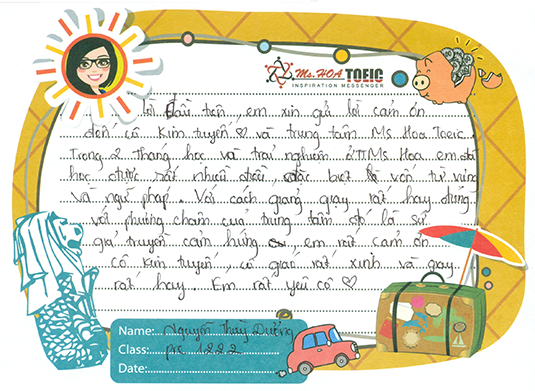 Ms. HOA TOEIC
INSPIRATION MESSENGER
Lời đầu tiên, em xin gửi lời cảm ơn
đến cô Kim Tuyến ♡ và trung tâm Ms Hoa Toeic.
Trong 2 tháng học và trải nghiệm ở TT Ms Hoa, em đã
học được rất nhiều điều, đặc biệt là vốn từ vựng
và ngữ pháp. Với cách giảng giạy rất hay đúng
với phương châm của trung tâm đó là sứ
giả truyền cảm hứng em rất cảm ơn
cô Kim Tuyến, cô giáo rất xinh và giạy
rất hay. Em rất yêu cô ♡
Name: Nguyễn Thuỳ Dương
Class: pre 1222
Date: